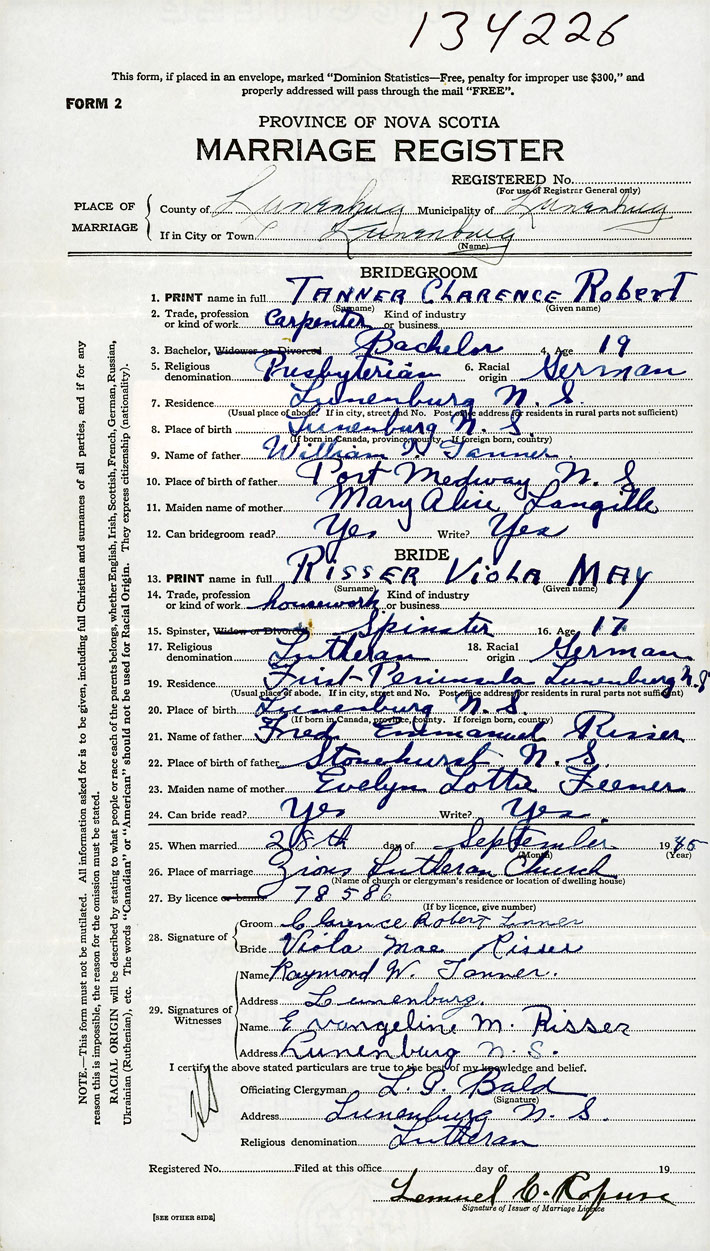 134226
This form, if placed in an envelope, marked “Dominion Statistics—Free, penalty for improper use $300,” and
properly addressed will pass through the mail “FREE”.
FORM 2
PROVINCE OF NOVA SCOTIA
MARRIAGE REGISTER
REGISTERED No.
(For use of Registrar General only)
PLACE OF MARRIAGE
County of Lunenburg Municipality of Lunenburg
If in City or Town Lunenburg
(Name)
BRIDEGROOM
1. PRINT name in full TANNER CLARENCE Robert
(Surname) (Given name)
2. Trade, profession or kind of work Carpenter Kind of industry or business
3. Bachelor, Widower or Divorced Bachelor 4. Age 19
5. Religious denomination Presbyterian 6. Racial origin German
7. Residence Lunenburg N. S.
(Usual place of abode. If in city, street and No. Post office address for residents in rural parts not sufficient)
8. Place of birth Lunenburg N. S.
(If born in Canada, province, county. If foreign born, country)
9. Name of father William N Tanner
10. Place of birth of father Port Medway N. S
11. Maiden name of mother Mary Alice Langille
12. Can bridegroom read? Yes Write? Yes
BRIDE
13. PRINT name in full RISSER VIOLA MAY
(Surname) (Given name)
14. Trade, profession or kind of work housework Kind of industry or business
15. Spinster, Widow or Divorced Spinster 16. Age 17
17. Religious denomination Lutheran 18. Racial origin German
19. Residence First Peninsula Lunenburg N.S
(Usual place of abode. If in city, street and No. Post office address for residents in rural parts not sufficient)
20. Place of birth Lunenburg N. S.
(If born in Canada, province, county. If foreign born, country)
21. Name of father Fred Emmanuel Risser
22. Place of birth of father Stonehurst N. S.
23. Maiden name of mother Evelyn Lottie Feener
24. Can bride read? Yes Write? Yes.
25. When married 28th day of September 1945
(Month) (Year)
26. Place of marriage Zions Lutheran Church
(Name of church or clergyman's residence or location of dwelling house)
27. By licence or banns 78586
(If by licence, give number)
28. Signature of
Groom Clarence Robert Tanner
Bride Viola Mae Risser
29. Signatures of Witnesses
Name Raymond W. Tanner.
Address Lunenburg.
Name Evangeline M. Risser
Address Lunenburg N. S.
I certify the above stated particulars are true to the best of my knowledge and belief.
Officiating Clergyman L. G. Bald
(Signature)
Address Lunenburg N. S.
Religious denomination Lutheran
Registered No. Filed at this office day of 19
Lemuel C.
Signature of Issuer of Marriage Licence
[SEE OTHER SIDE]
NOTE.—This form must not be mutilated. All information asked for is to be given, including full Christian and surnames of all parties, and if for any
reason this is impossible, the reason for the omission must be stated.
RACIAL ORIGIN will be described by stating to what people or race each of the parents belongs, whether English, Irish, Scottish, French, German, Russian,
Ukrainian (Ruthenian), etc. The words “Canadian” or “American” should not be used for Racial Origin. They express citizenship (nationality).